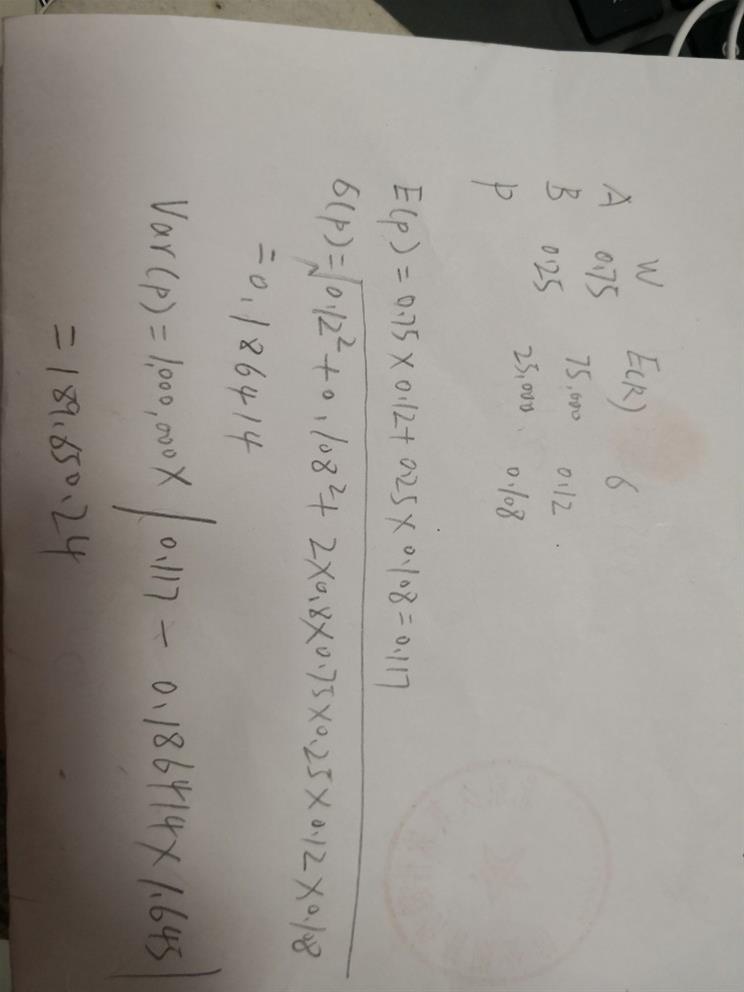 W E(R) б
A 0.75 75,000 0.12
B 0.25 25,000 0.108
p
E(p) = 0.75 × 0.12 + 0.25 × 0.108 = 0.117
б(p) = √0.12² + 0.108² + 2×0.8×0.75×0.25×0.12×0.108
= 0.186414
Var(p) = 1,000,000 × | 0.117 − 0.186414 × 1.645 |
= 189,650.24